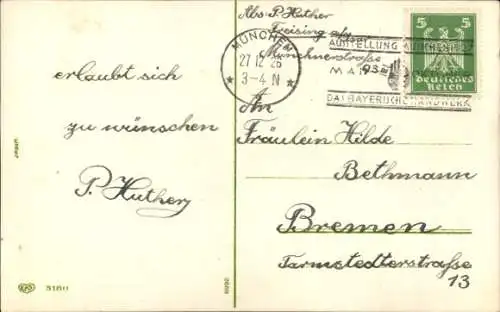 erlaubt sich
zu wünschen
P. Huther
3160
Abs. P. Huther
Freising a/Isar
Münchnerstraße
MÜNCHEN
27.12.26
3-4 N
AUSSTELLUNG MÜNCHEN
MAI
DAS BAYERISCHE HANDWERK
5 5
Deutsches
Reich
An
Fräulein Hilde
Bethmann
Bremen
Tarmstedterstraße
13